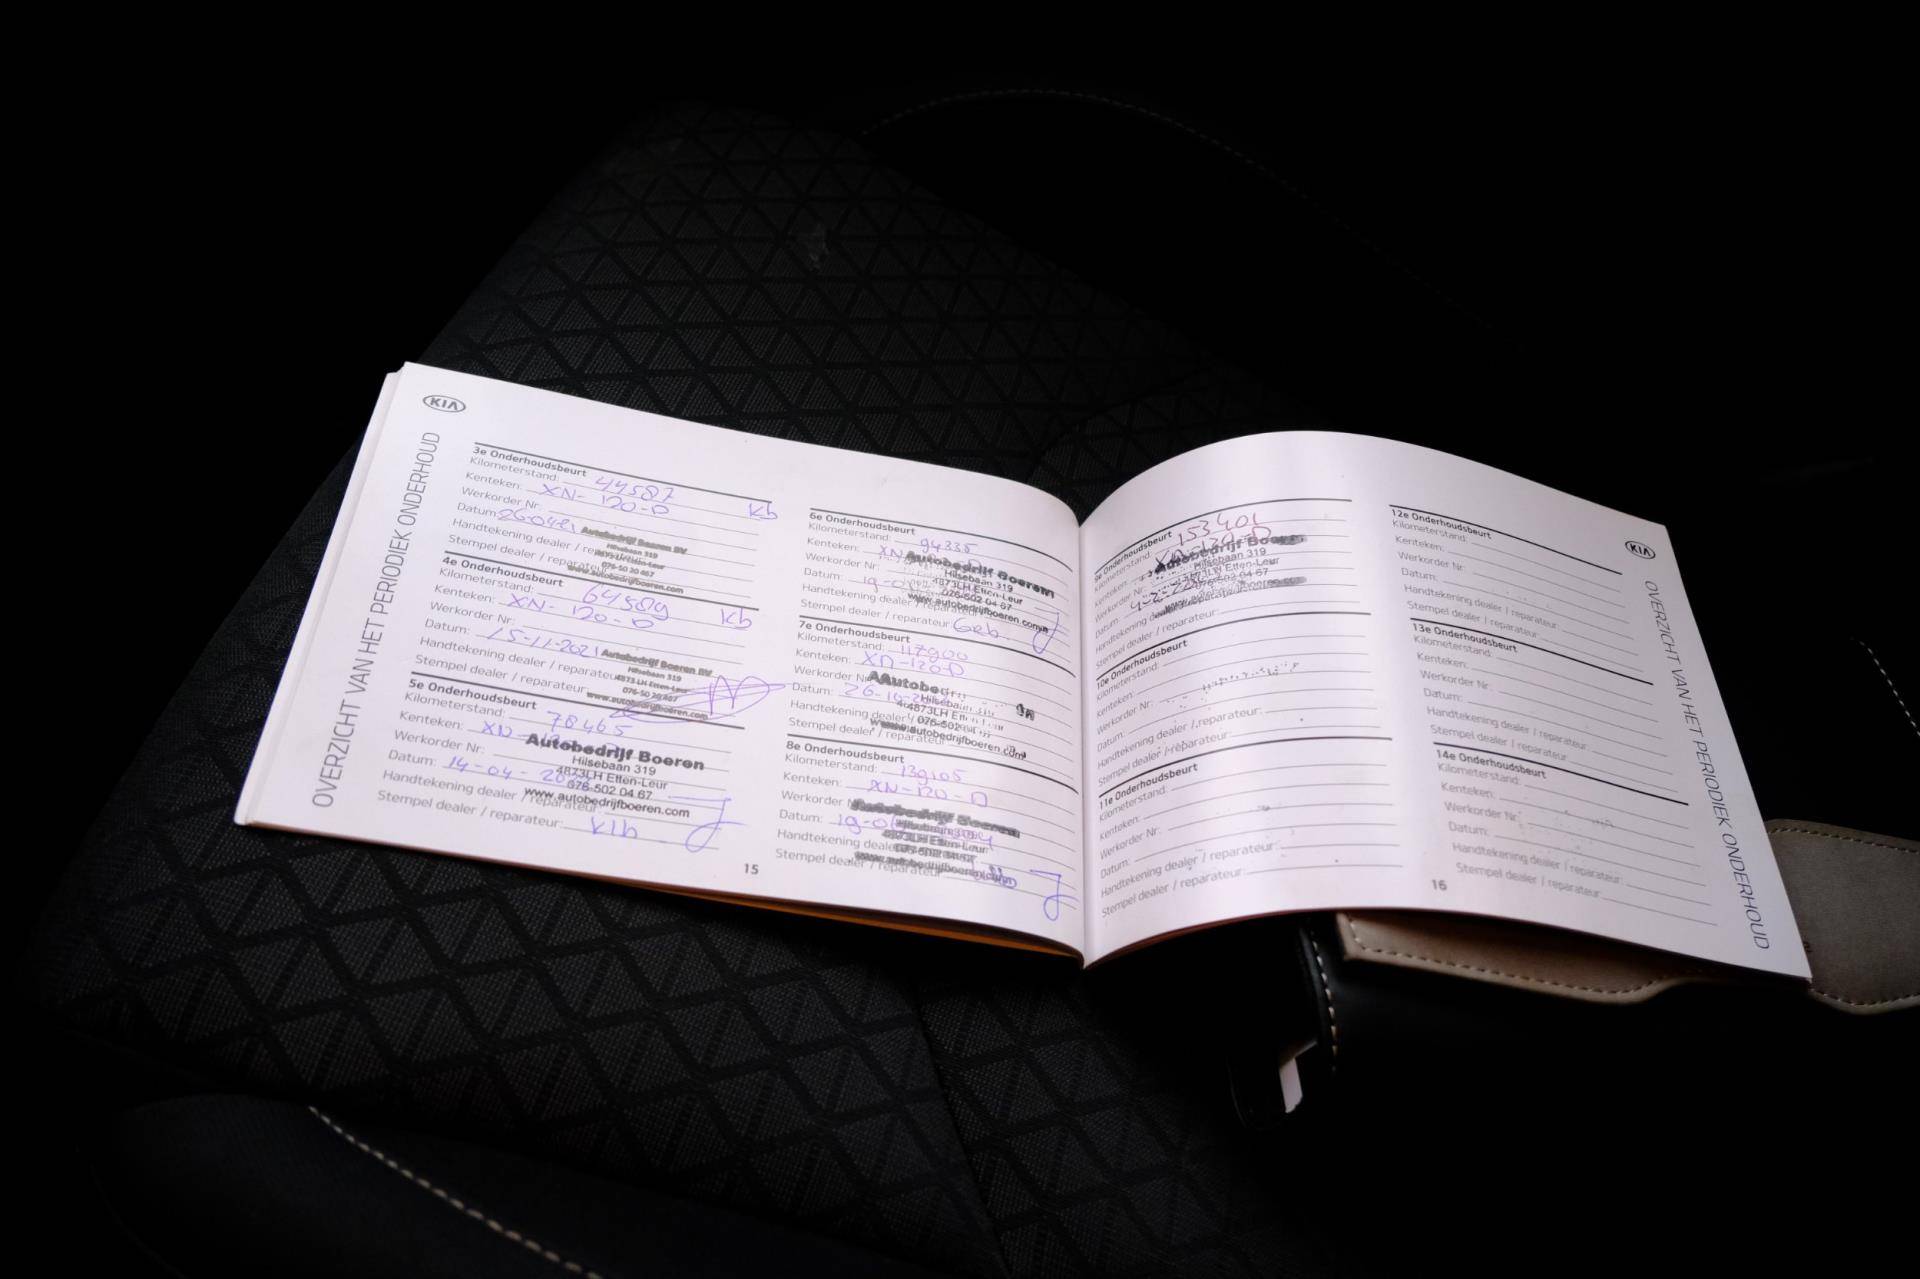 KIA
OVERZICHT VAN HET PERIODIEK ONDERHOUD
3e Onderhoudsbeurt
Kilometerstand: 44587
Kenteken: XN-120-D
Werkorder Nr: kb
Datum: 26-04-21
Handtekening dealer / reparateur:
Stempel dealer / reparateur:
Autobedrijf Boeren BV
Hilsebaan 319
4873 LH Etten-Leur
076-50 20 467
www.autobedrijfboeren.com
4e Onderhoudsbeurt
Kilometerstand: 64589
Kenteken: XN-120-D
Werkorder Nr: kb
Datum: 15-11-2021
Handtekening dealer / reparateur:
Stempel dealer / reparateur:
Autobedrijf Boeren BV
Hilsebaan 319
4873 LH Etten-Leur
076-50 20 467
www.autobedrijfboeren.com
5e Onderhoudsbeurt
Kilometerstand: 78465
Kenteken: XN-
Werkorder Nr:
Datum: 14-04-
Handtekening dealer / reparateur:
Stempel dealer / reparateur: klb
Autobedrijf Boeren
Hilsebaan 319
4873LH Etten-Leur
076-502 04 67
www.autobedrijfboeren.com
6e Onderhoudsbeurt
Kilometerstand: 94335
Kenteken: XN
Werkorder Nr:
Datum: 19-0
Handtekening dealer / reparateur:
Stempel dealer / reparateur:
Autobedrijf Boeren
Hilsebaan 319
4873LH Etten-Leur
076-502 04 67
www.autobedrijfboeren.com
7e Onderhoudsbeurt
Kilometerstand: 117900
Kenteken: XN-120-D
Werkorder Nr:
Datum: 26-10-
Handtekening dealer / reparateur:
Stempel dealer / reparateur:
Autobedrijf
Hilsebaan
4873LH Etten-Leur
076-502
www.autobedrijfboeren.com
8e Onderhoudsbeurt
Kilometerstand: 139105
Kenteken: XN-120-D
Werkorder Nr:
Datum: 19-0
Handtekening dealer / reparateur:
Stempel dealer / reparateur:
Autobedrijf Boeren
Hilsebaan 319
4873LH Etten-Leur
076-502 04 67
www.autobedrijfboeren.com
15
9e Onderhoudsbeurt
Kilometerstand: 153401
Kenteken: XN-120-D
Werkorder Nr:
Datum:
Handtekening dealer / reparateur:
Stempel dealer / reparateur:
Autobedrijf Boeren
Hilsebaan 319
4873LH Etten-Leur
076-502 04 67
10e Onderhoudsbeurt
Kilometerstand:
Kenteken:
Werkorder Nr:
Datum:
Handtekening dealer / reparateur:
Stempel dealer / reparateur:
11e Onderhoudsbeurt
Kilometerstand:
Kenteken:
Werkorder Nr:
Datum:
Handtekening dealer / reparateur:
Stempel dealer / reparateur:
12e Onderhoudsbeurt
Kilometerstand:
Kenteken:
Werkorder Nr:
Datum:
Handtekening dealer / reparateur:
Stempel dealer / reparateur:
13e Onderhoudsbeurt
Kilometerstand:
Kenteken:
Werkorder Nr:
Datum:
Handtekening dealer / reparateur:
Stempel dealer / reparateur:
14e Onderhoudsbeurt
Kilometerstand:
Kenteken:
Werkorder Nr:
Datum:
Handtekening dealer / reparateur:
Stempel dealer / reparateur:
16
KIA
OVERZICHT VAN HET PERIODIEK ONDERHOUD